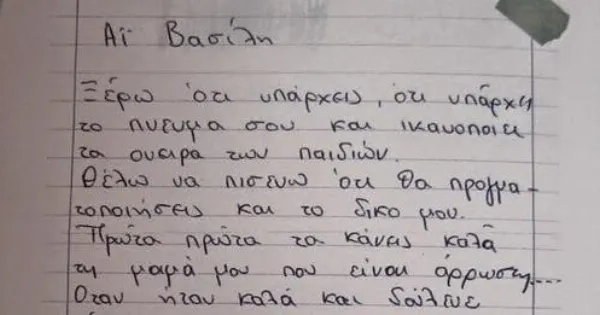 Αϊ Βασίλη
Ξέρω ότι υπάρχεις, ότι υπάρχει
το πνευμα σου και ικανοποιει
τα ονειρα των παιδιών.
Θέλω να πισευω ότι θα πραγμα-
τοποιήσεις και το δικο μου.
Πρώτα πρώτα τα κάνεις καλά
τη μαμά μου που είναι άρρωστη....
Οταν ήταν καλά και δούλευε